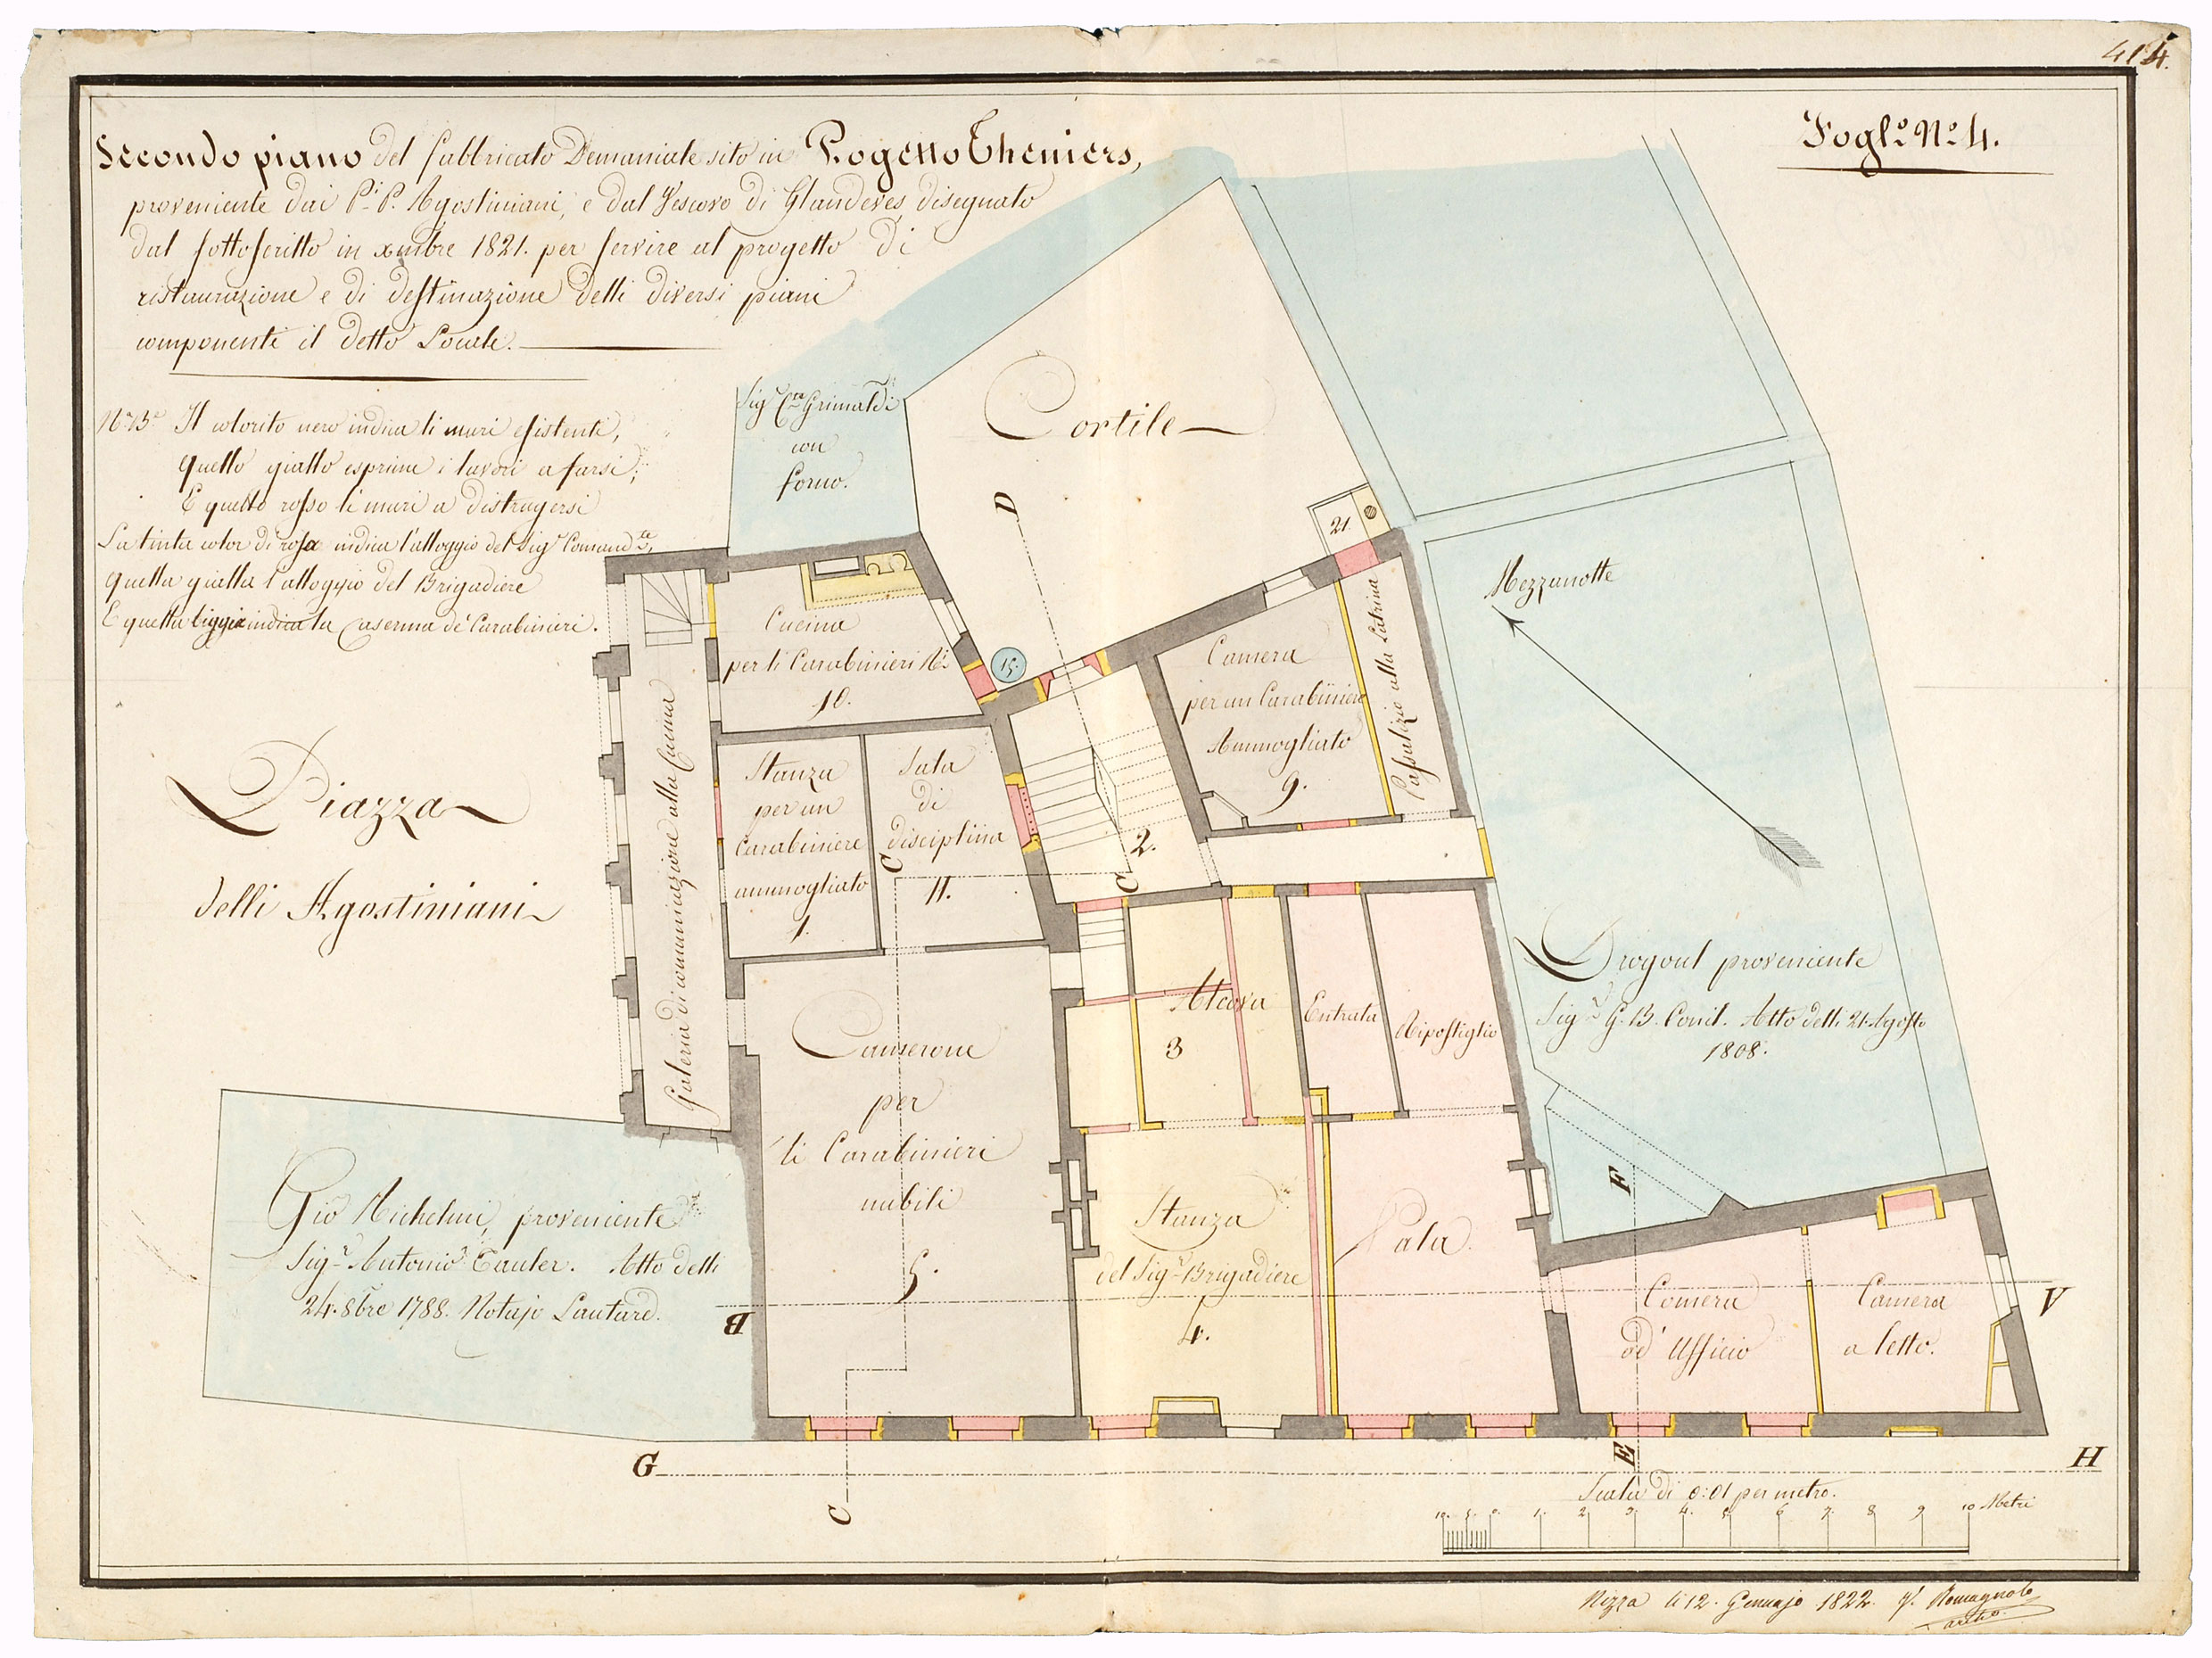 414.
Fogl.º Nº 4.
Secondo piano del fabbricato Demaniale sito in Pogetto Theniers,
proveniente dai P.i P. Agostiniani, e dal Vescovo di Glandeves disegnato
dal sottoscritto in xmbre 1821. per servire al progetto di
ristaurazione e di destinazione delli diversi piani
componenti il detto Locale.
N.B. Il colorito nero indica li muri esistenti,
quello giallo esprime i lavori a farsi,
E quello rosso li muri a distrugersi
La tinta color di rosa indica l'alloggio del Sig.r Comand.te,
quella gialla l'alloggio del Brigadiere
E quella biggia indica la Caserma de' Carabinieri.
Sig.r C.te Grimaldi
con
forno.
Cortile
D
21.
15.
Mezzanotte
Cucina
per li Carabinieri R.i
10.
Galeria di comunicazione alla Cucina
Camera
per un Carabiniere
Ammogliato
9.
Passalizio alla Latrina
Stanza
per un
Carabiniere
ammogliato
1.
Sala
di
disciplina
11.
C
C
2.
Piazza
delli Agostiniani
Alcova
3
Entrata
Ripostiglio
Drogoul proveniente
Sig.r G. B. Conil. Atto delli 21. Agosto
1808.
Camerone
per
li Carabinieri
nubili
5.
Gio Michelini, proveniente
Sig.r Antonio Tauler. Atto delli
24. 8bre 1788. Notajo Lautard.
B
Stanza
del Sig.r Brigadiere
4.
Sala.
F
Camera
d'Ufficio
Camera
a letto.
A
G
H
C
E
Scala di 0:01 per metro.
10. 5. 0. 1. 2. 3. 4. 5. 6 7. 8 9 10 Metri
Nizza li 12. Gennajo 1822. Romagnolo